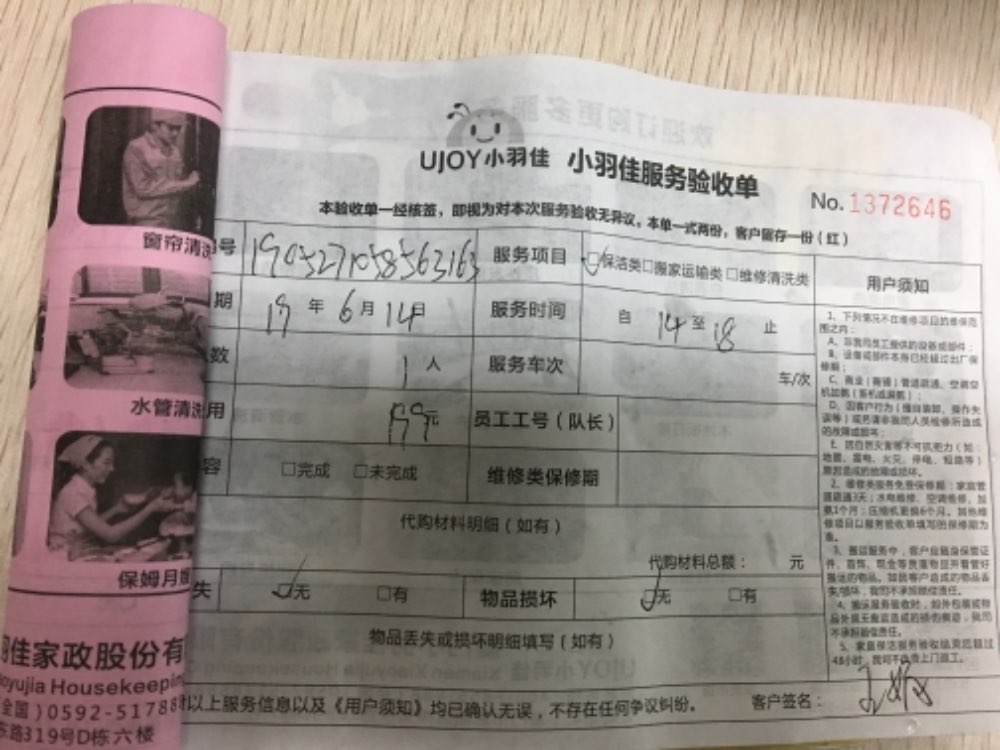 UJOY小羽佳 小羽佳服务验收单
No.1372646
本验收单一经核签，即视为对本次服务验收无异议，本单一式两份，客户留存一份（红）
号 190527105856316 服务项目 保洁类 搬家运输类 维修清洗类 用户须知
期 19年6月14日 服务时间 自14至18止
数 1人 服务车次 车/次
用 199元 员工工号（队长）
容 完成 未完成 维修类保修期
代购材料明细（如有）
代购材料总额： 元
失 无 有 物品损坏 无 有
物品丢失或损坏明细填写（如有）
以上服务信息以及《用户须知》均已确认无误，不存在任何争议纠纷。 客户签名：
1、下列情况不在维修项目的维保范
围之内：
A、非我司员工提供的设备或部件；
B、设备或部件本身已经超过出厂保
修期；
C、商业（商铺）管道疏通、空调空
机加氨（新机或漏氨）；
D、因客户行为（擅自装卸、操作失
误等）或另请非我司人员检修所造成
的故障或损坏；
E、因自然灾害等不可抗拒力（如：
地震、雷电、火灾、停电、短路等）
原因造成的故障或损坏。
2、维修类服务免费保修期：家庭管
道疏通3天；水电维修、空调维修，加
氨1个月；压缩机更换6个月。其他维
修项目以服务验收单填写的保修期为
准。
3、搬运服务中，客户应随身保管证
件、首饰、现金等贵重物品并看管好
搬运的物品。如因客户造成的物品丢
失/损坏，我司不承担赔偿责任。
4、搬运服务验收时，如外包装或物
不承担赔偿责任。
5、家庭保洁服务验收结束后超过
48小时，我司不办理上门返工。
窗帘清洗
水管清洗
保姆月嫂
羽佳家政股份有
oyujia Housekeeping
全国）0592-51788
东路319号D栋六楼